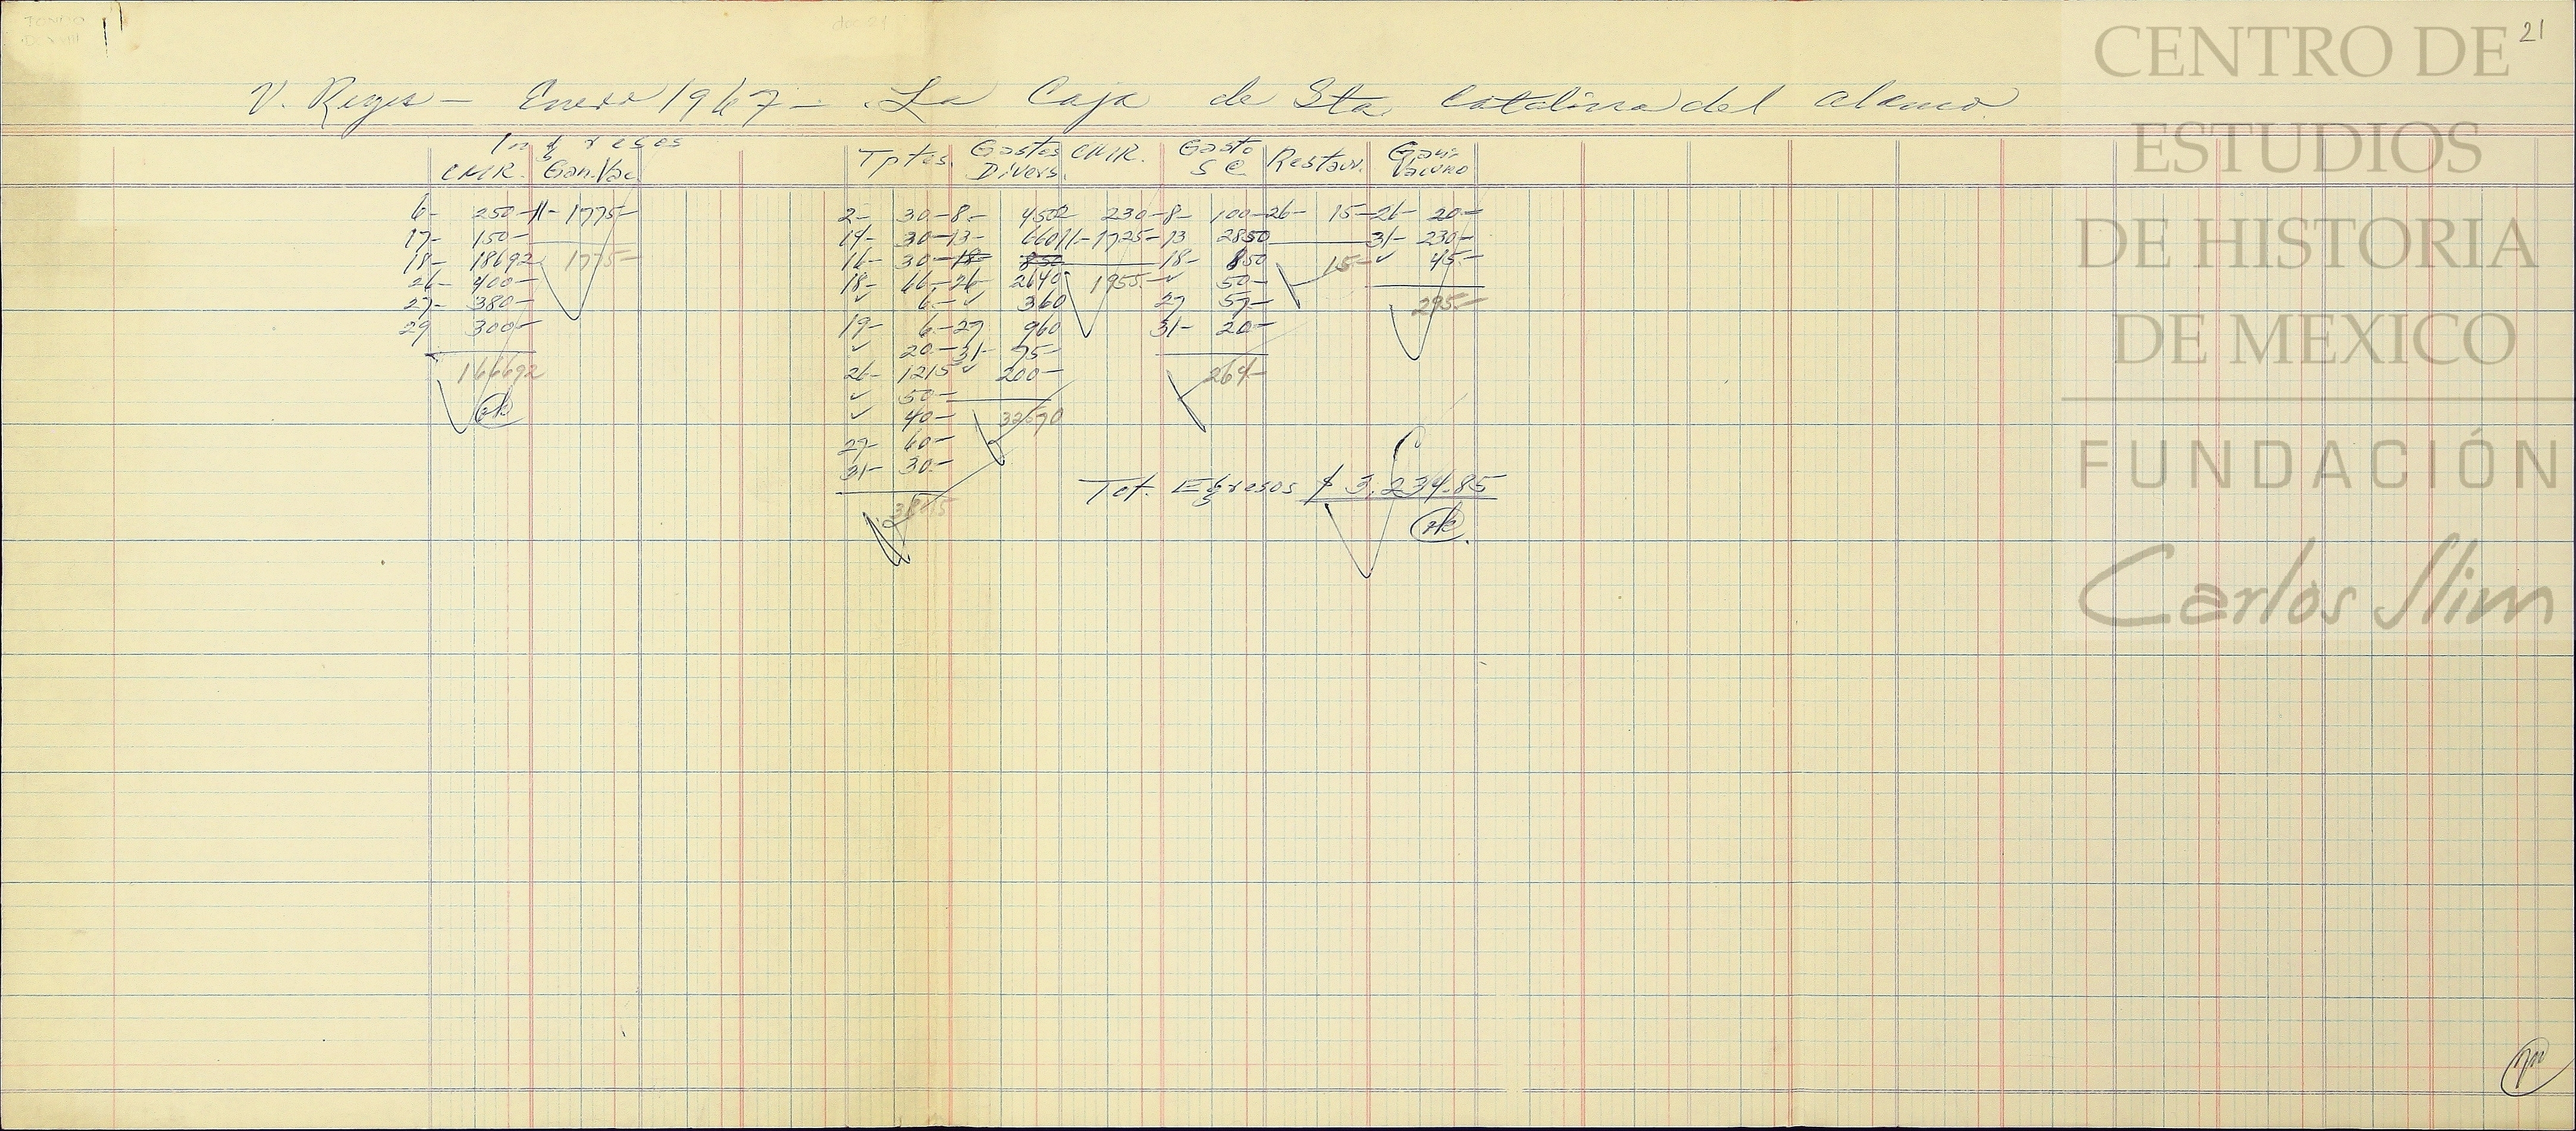 21
V. Reyes — Enero 1967 — La Caja de Sta. Catalina del Alamo
Ingresos
CMR. Gan. Vac. Tptes. Gastos Divers. CMR. Gasto S C. Restaur. Gan: Vacuno
6- 250- 11- 1775- 2- 30- 8- 450 2 230- 8- 100- 26- 15- 26- 20-
17- 150- 14- 30- 13- 660 11- 1725- 13 2850 31- 230-
18- 18692 1775- 16- 30- 18- 850 18- 850 15- ✓ 45.-
26- 400- 18- 66.- 26- 2640 1955.- ✓ 50-
27- 380- ✓ 6.- ✓ 360 27 57- 295.-
29 300- 19- 6.- 27 960 31- 20-
✓ 20.- 31- 75-
166692 26- 1215 ✓ 200- 264-
✓ 50-
✓ 40- 32570
27- 60-
31- 30.-
Tot. Egresos $ 3,234.85
38015
CENTRO DE
ESTUDIOS
DE HISTORIA
DE MEXICO
FUNDACIÓN
Carlos Slim